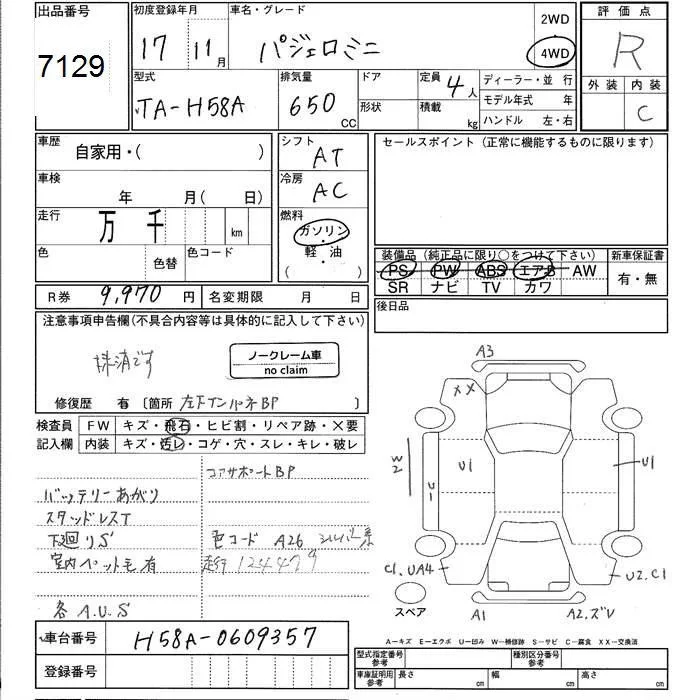 出品番号
7129
初度登録年月
17 11月
車名・グレード
パジェロミニ
2WD
4WD
評価点
R
外装 内装
C
型式
TA-H58A
排気量
650 CC
ドア
形状
定員 4人
積載 kg
ディーラー・並行
モデル年式 年
ハンドル 左・右
車歴
自家用・( )
シフト
AT
セールスポイント(正常に機能するものに限ります)
車検
年 月(日)
冷房
AC
走行
万 千 km
燃料
ガソリン
軽・油
( )
色
色替
色コード
装備品(純正品に限り○をつけて下さい)
新車保証書
PS PW ABS エアB AW
SR ナビ TV カワ
有・無
R券 9,970 円
名変期限 月 日
後日品
注意事項申告欄(不具合内容等は具体的に記入して下さい)
抹消です
ノークレーム車
no claim
修復歴 有 〔箇所 左下インパネBP 〕
検査員
記入欄
FW キズ・飛石・ヒビ割・リペア跡・×要
内装 キズ・汚レ・コゲ・穴・スレ・キレ・破レ
コアサポートBP
バッテリーあがり
スタッドレスT
下廻りS
色コード A26 シルバー系
室内ペット毛有
走行 124479
各A.U.S
A3
XX
W2
U1
U1
U1
C1.UA4
U2.C1
スペア
A1
A2.ズレ
A-キズ E-エクボ U-凹み W-補修跡 S-サビ C-腐食 XX-交換済
車台番号 H58A-0609357
登録番号
型式指定番号
参考
種別区分番号
参考
車庫証明用
参考
長さ cm
幅 cm
高さ cm